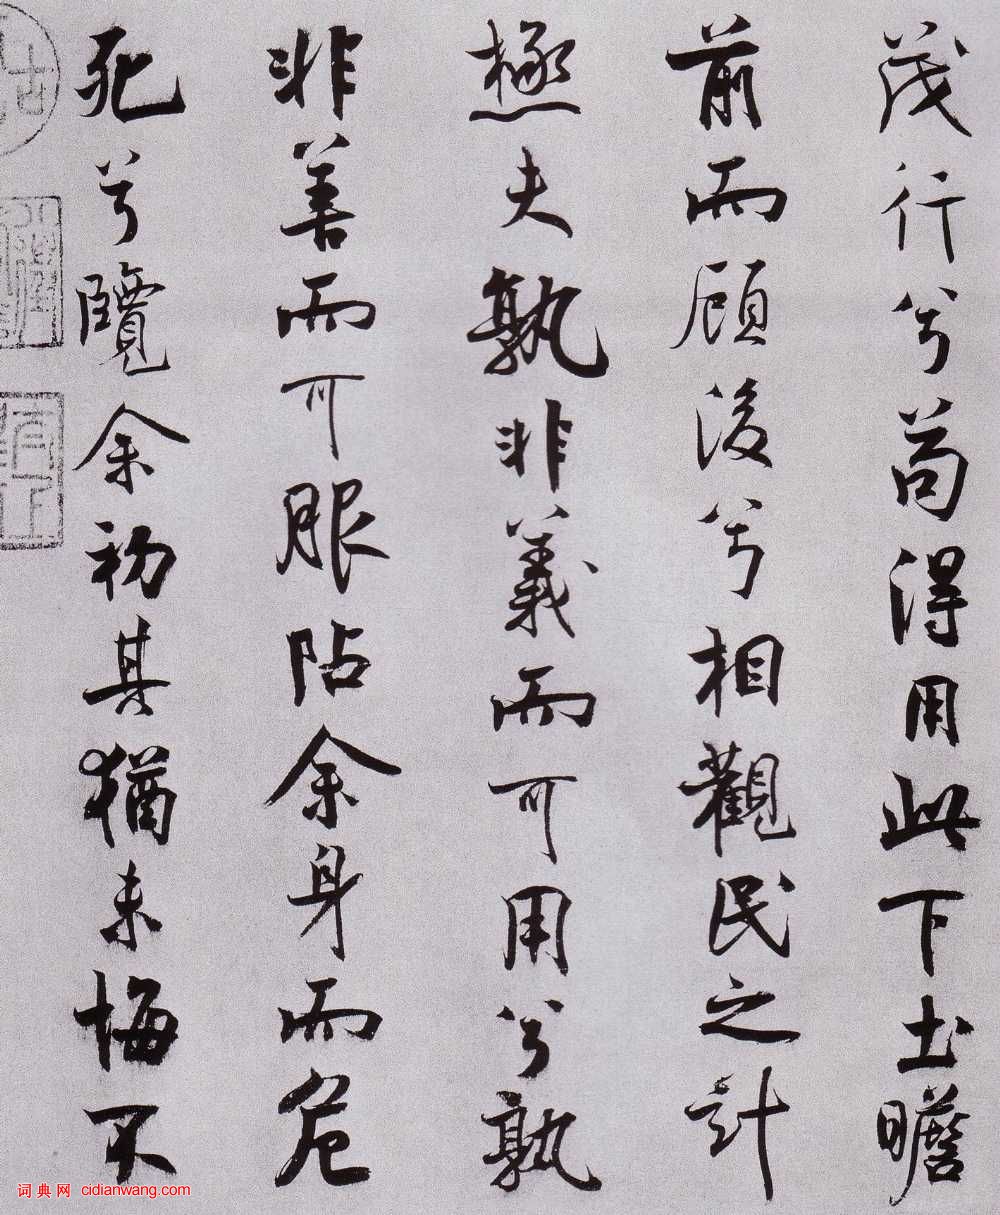 茂行兮苟得用此下土瞻
前而顧後兮相觀民之計
極夫孰非義而可用兮孰
非善而可服阽余身而危
死兮覽余初其猶未悔不
词典网 cidianwang.com